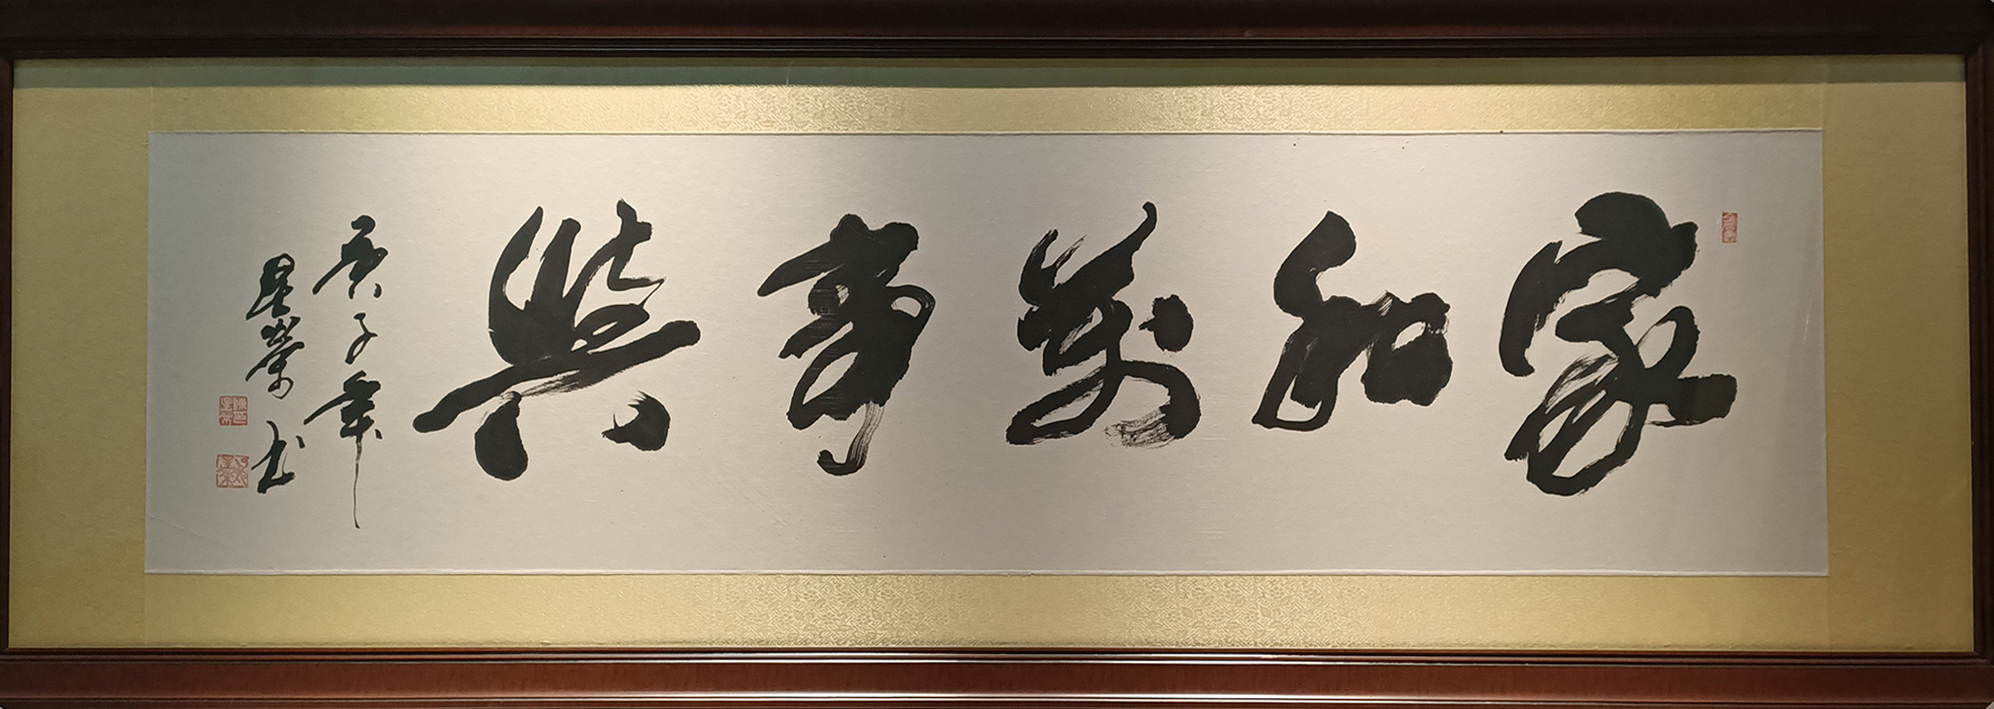 家和萬事興
庚子年
星榮书